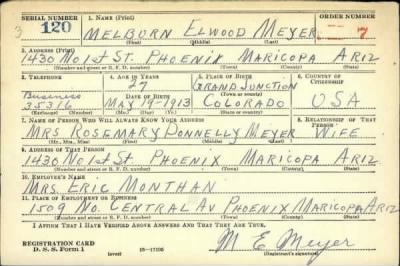 SERIAL NUMBER 1. NAME (Print) ORDER NUMBER
3 120 MELBURN ELWOOD MEYER 7
(First) (Middle) (Last)
2. ADDRESS (Print)
1430 No 1st St. PHOENIX MARICOPA ARIZ
(Number and street or R. F. D. number) (Town) (County) (State)
3. TELEPHONE 4. AGE IN YEARS 5. PLACE OF BIRTH 6. COUNTRY OF CITIZENSHIP
27 GRAND JUNCTION
Business (Town or county)
DATE OF BIRTH
35316 MAY 19-1913 COLORADO USA
(Exchange) (Number) (Mo.) (Day) (Yr.) (State or country)
7. NAME OF PERSON WHO WILL ALWAYS KNOW YOUR ADDRESS 8. RELATIONSHIP OF THAT PERSON
MRS ROSEMARY DONNELLY MEYER WIFE
(Mr., Mrs., Miss) (First) (Middle) (Last)
9. ADDRESS OF THAT PERSON
1430 No 1st St. PHOENIX MARICOPA ARIZ
(Number and street or R. F. D. number) (Town) (County) (State)
10. EMPLOYER'S NAME
MRS. ERIC MONTHAN
11. PLACE OF EMPLOYMENT OR BUSINESS
1509 No. CENTRAL AV PHOENIX MARICOPA ARIZ
(Number and street or R. F. D. number) (Town) (County) (State)
I AFFIRM THAT I HAVE VERIFIED ABOVE ANSWERS AND THAT THEY ARE TRUE.
REGISTRATION CARD
D. S. S. Form 1 (over) 16-17105 M E Meyer